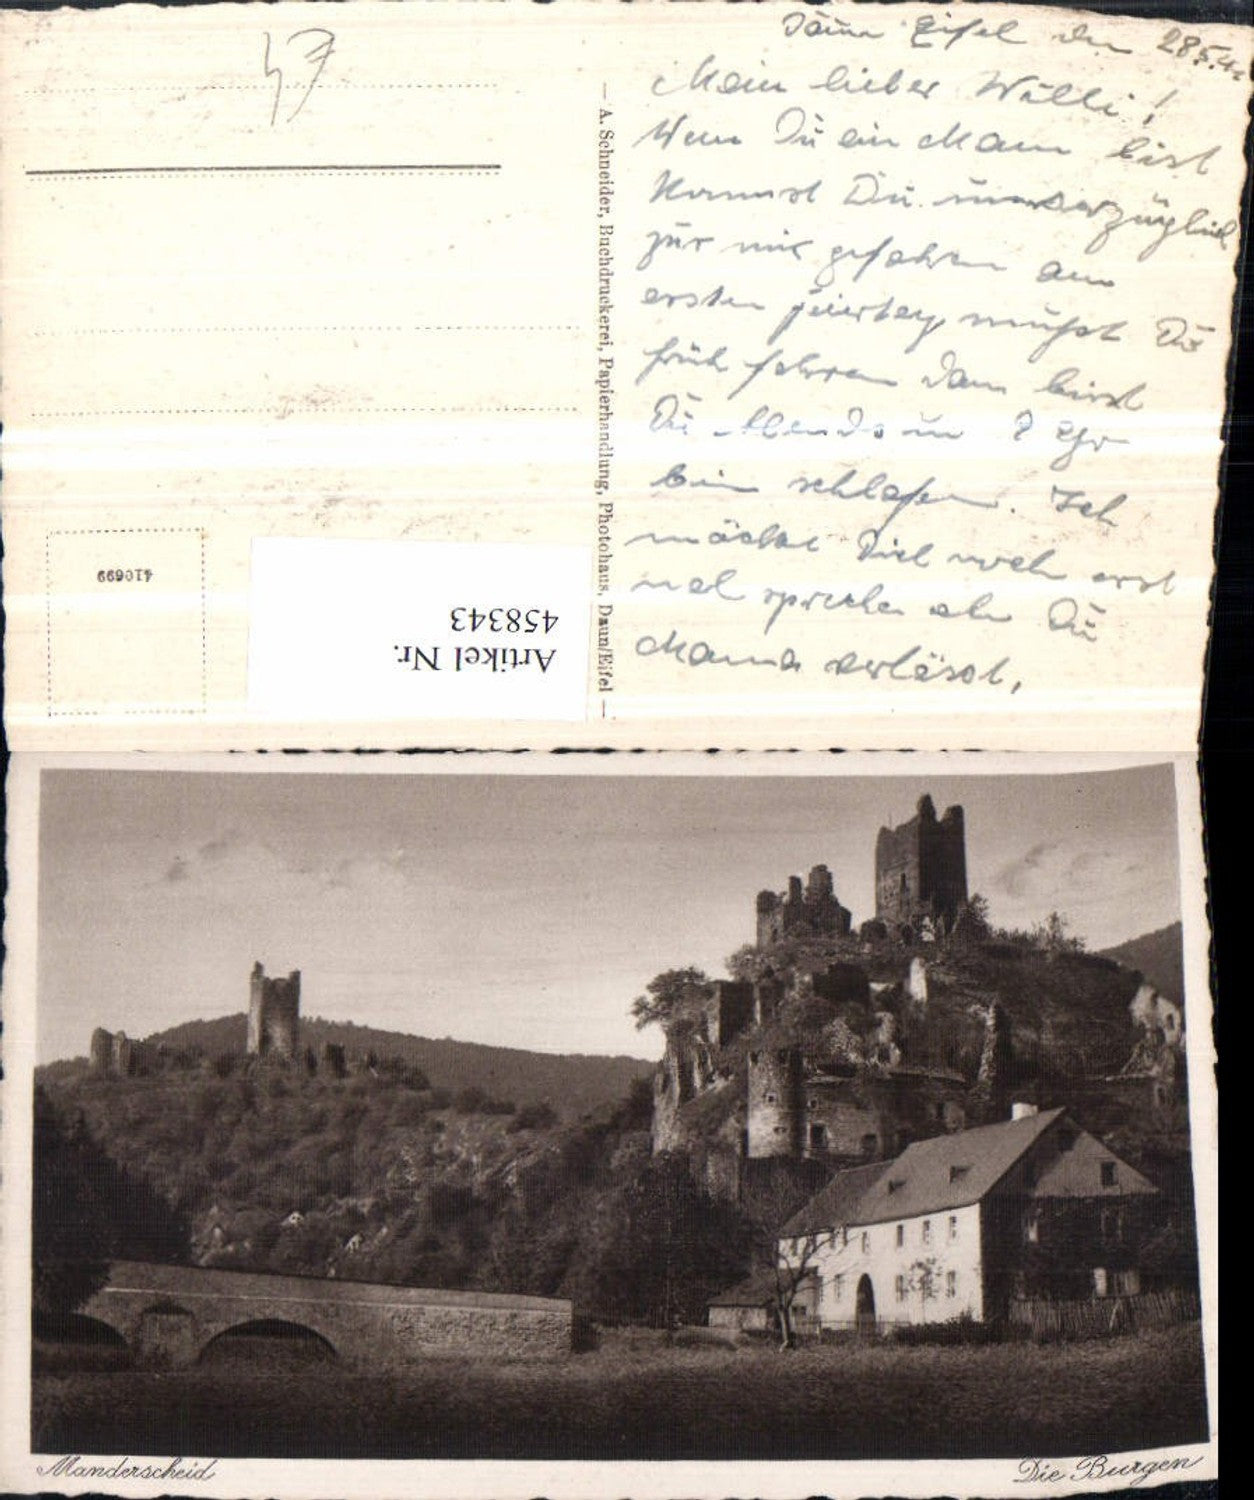 Daun Eifel den 28.5.4
Mein lieber Willi!
Wenn Du ein Mann bist
kommst Du unverzüglich
zu mir gefahren am
ersten Feiertag mußt Du
früh fahren dann bist
Du Abends um 8 Uhr
bein schlafen. Ich
möchte Dich noch erst
mal sprechen ehe Du
Mama verläßt,
— A. Schneider, Buchdruckerei, Papierhandlung, Photohaus, Daun/Eifel —
410699
Artikel Nr.
458343
Manderscheid
Die Burgen